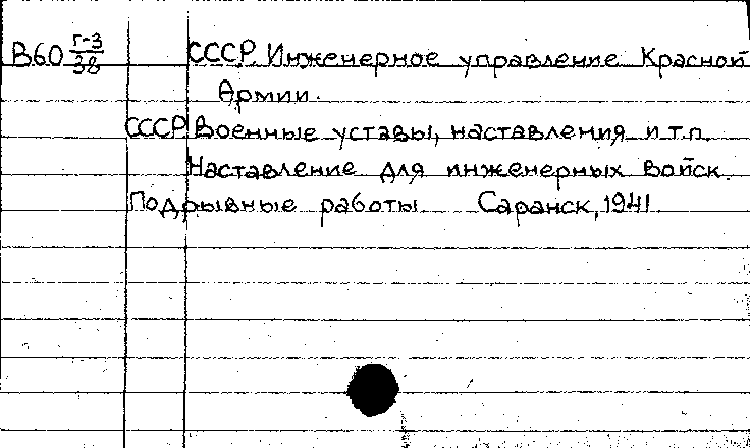 В60 Г-3/38 СССР. Инженерное управление Красной
Армии.
СССР Военные уставы, наставления и т.п.
Наставление для инженерных войск.
Подрывные работы Саранск, 1941